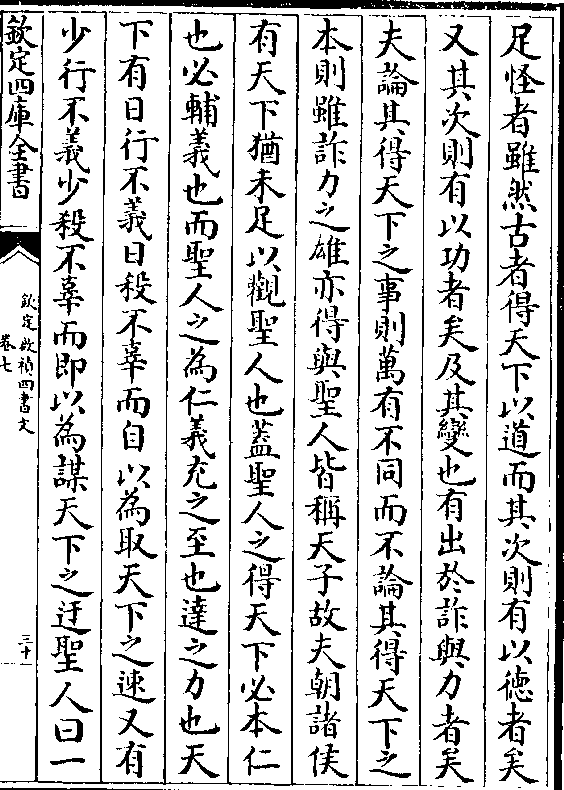 足怪者雖然古者得天下以道而其次則有以徳者矣
又其次則有以功者矣及其變也有出於詐與力者矣
夫論其得天下之事則萬有不同而不論其得天下之
本則雖詐力之雄亦得與聖人皆稱天子故夫朝諸侯
有天下猶未足以觀聖人也蓋聖人之得天下必本仁
也必輔義也而聖人之為仁義充之至也達之力也天
下有日行不義日殺不辜而自以為取天下之速又有
少行不義少殺不辜而即以為謀天下之迂聖人曰一
欽定四庫全書
欽定啟禎四書文
卷七
三十